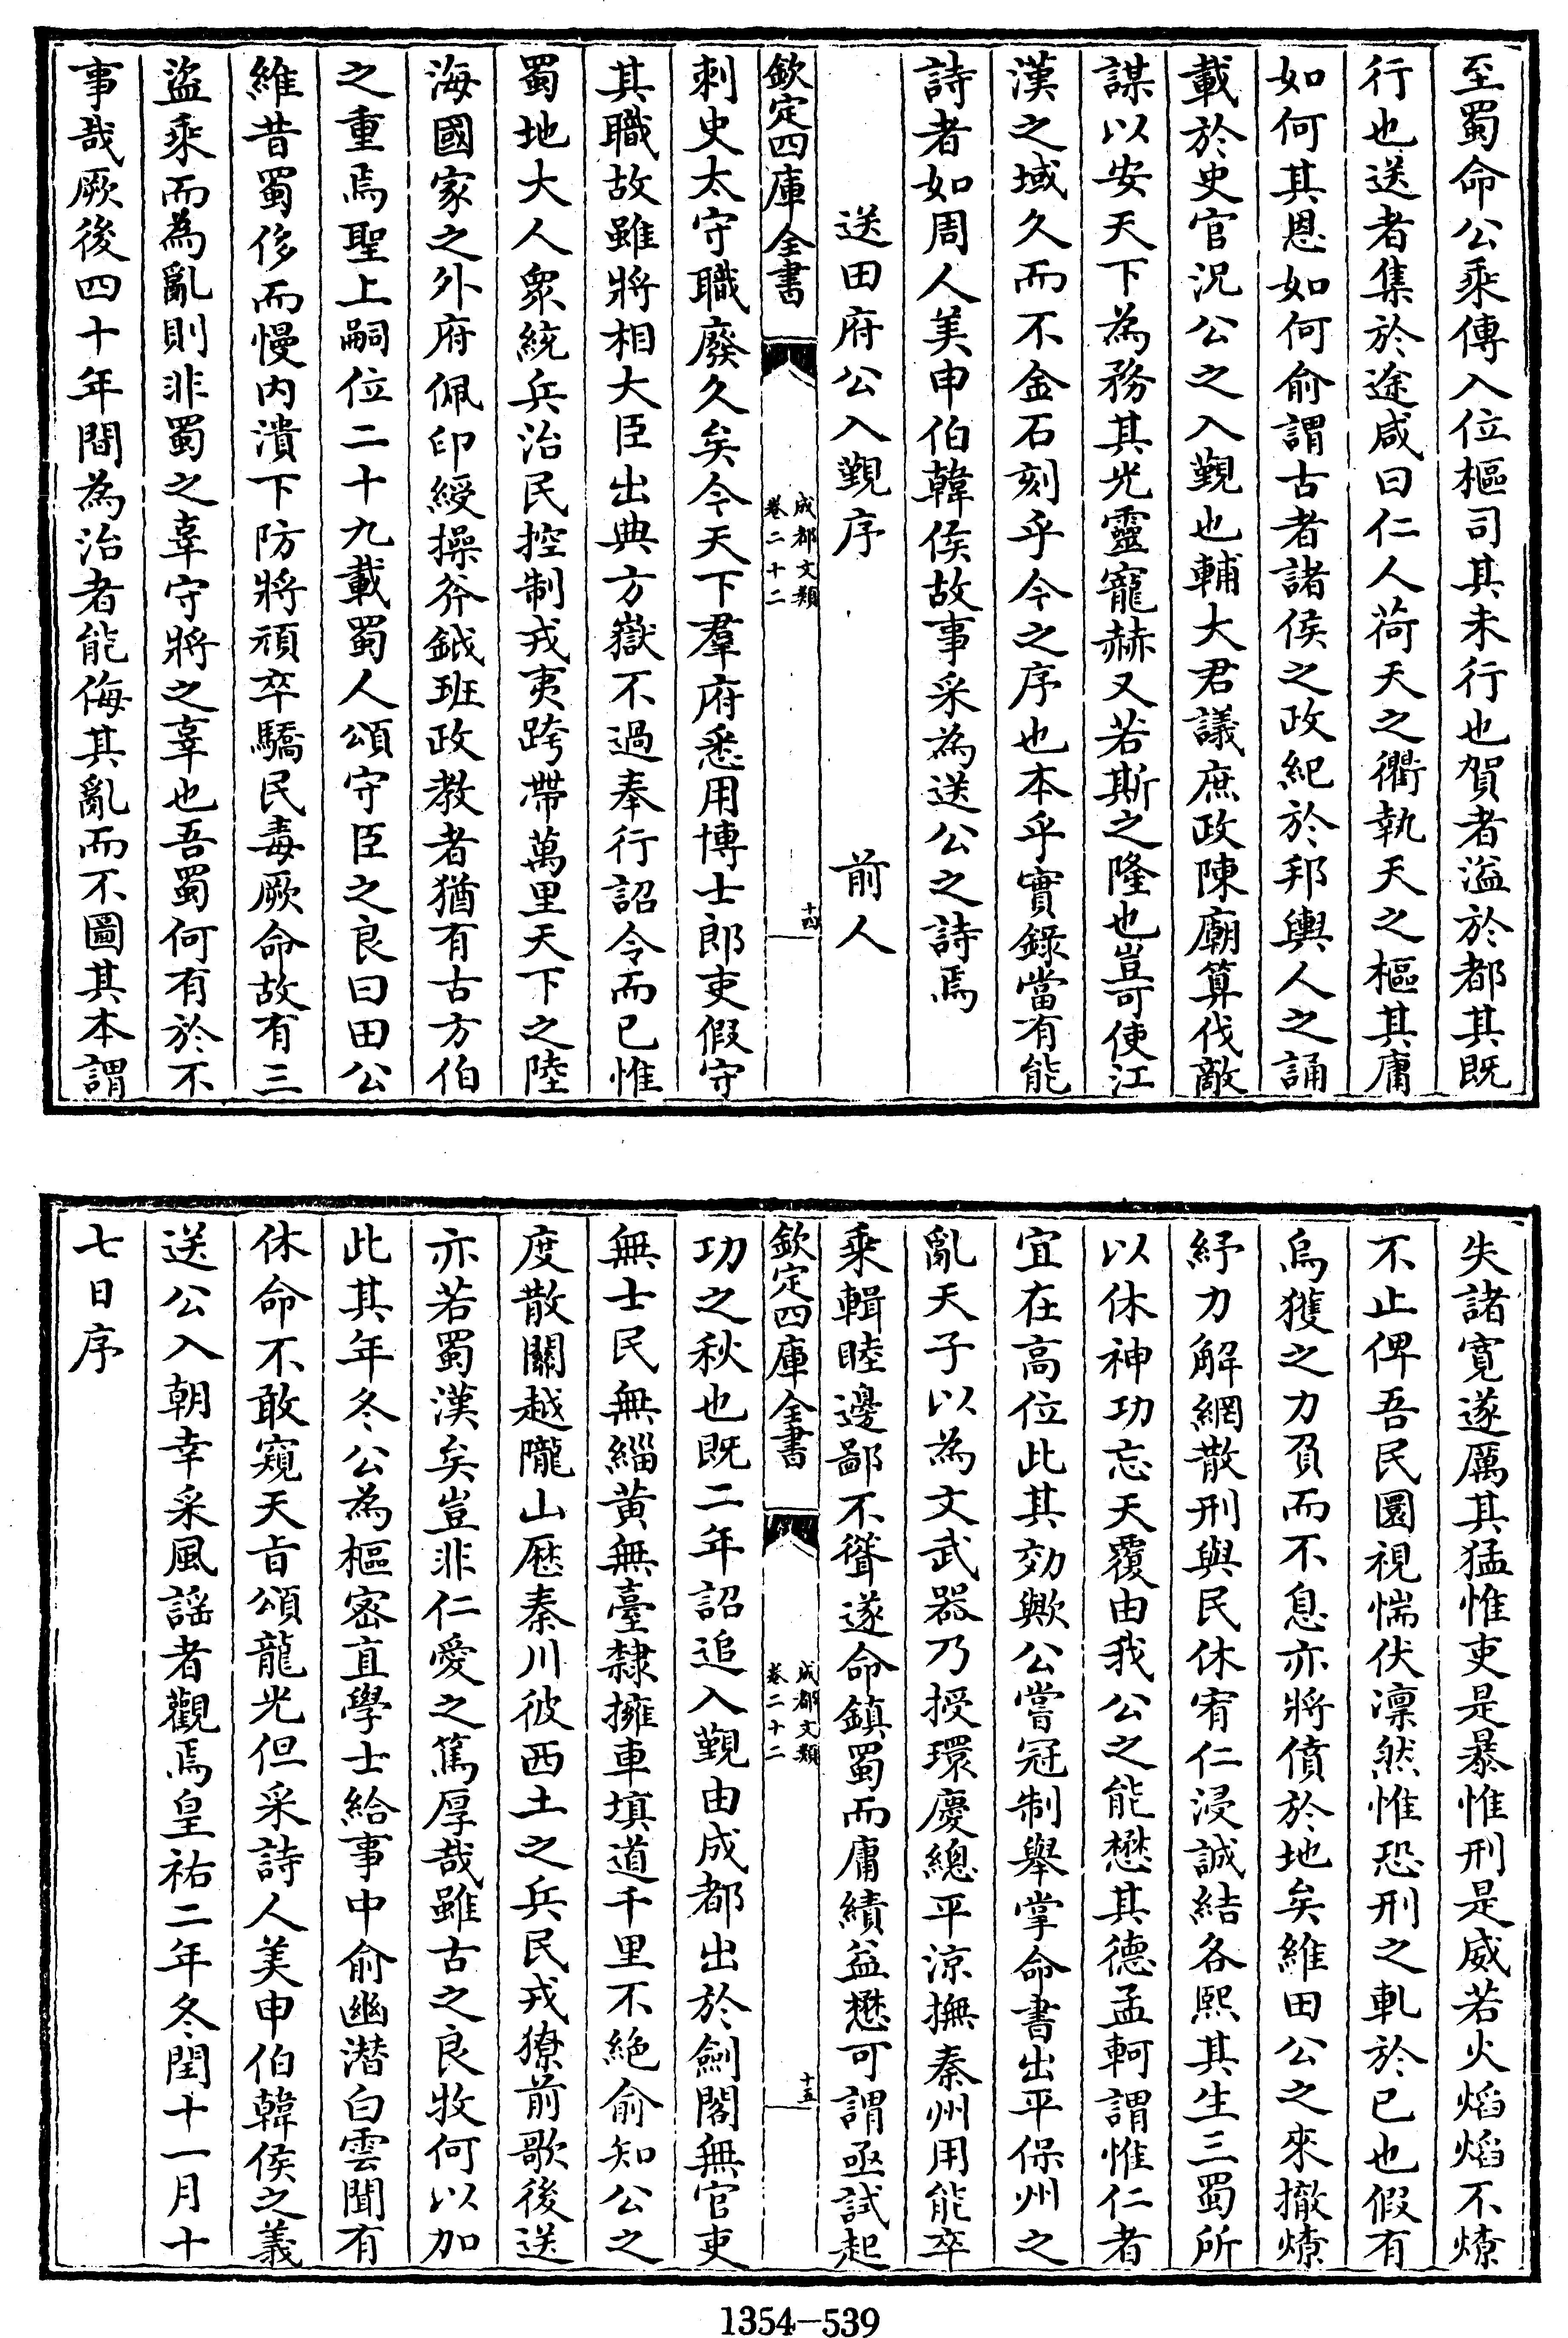 至蜀命公乘傳入位樞司其未行也賀者溢於都其既
行也送者集於途咸曰仁人荷天之衢執天之樞其庸
如何其恩如何俞謂古者諸侯之政紀於邦輿人之誦
載於史官況公之入覲也輔大君議庶政陳廟算伐敵
謀以安天下為務其光靈寵赫又若斯之隆也豈可使江
漢之域久而不金石刻乎今之序也本乎實錄當有能
詩者如周人美申伯韓侯故事采為送公之詩焉
送田府公入覲序 前人
欽定四庫全書 成都文類 卷二十二 十四
刺史太守職廢久矣今天下羣府悉用博士郎吏假守
其職故雖將相大臣出典方嶽不過奉行詔令而已惟
蜀地大人衆統兵治民控制戎夷跨帶萬里天下之陸
海國家之外府佩印綬操斧鉞班政教者猶有古方伯
之重焉聖上嗣位二十九載蜀人頌守臣之良曰田公
維昔蜀侈而慢内潰下防將頑卒驕民毒厥命故有三
盜乘而為亂則非蜀之辜守將之辜也吾蜀何有於不
事哉厥後四十年間為治者能侮其亂而不圖其本謂
失諸寛遂厲其猛惟吏是暴惟刑是威若火焰焰不燎
不止俾吾民圜視惴伏凛然惟恐刑之軋於已也假有
烏獲之力負而不息亦將僨於地矣維田公之來撤燎
紓力解網散刑與民休宥仁浸誠結各熙其生三蜀所
以休神功忘天覆由我公之能懋其德孟軻謂惟仁者
宜在高位此其効歟公嘗冠制舉掌命書出平保州之
亂天子以為文武器乃授環慶總平涼撫秦州用能卒
乘輯睦邊鄙不聳遂命鎮蜀而庸績益懋可謂亟試起
欽定四庫全書 成都文類 卷二十二 十五
功之秋也既二年詔追入覲由成都出於劍閣無官吏
無士民無緇黄無臺隸擁車填道千里不絶俞知公之
度散關越隴山歷秦川彼西土之兵民戎獠前歌後送
亦若蜀漢矣豈非仁愛之篤厚哉雖古之良牧何以加
此其年冬公為樞密直學士給事中俞幽潛白雲聞有
休命不敢窺天㫖頌龍光但采詩人美申伯韓侯之義
送公入朝幸采風謡者觀焉皇祐二年冬閏十一月十
七日序
1354—539